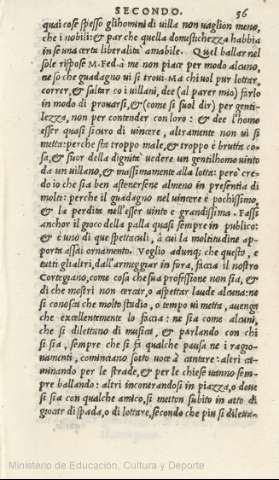 SECONDO. 56
quai cose spesso gli homini di uilla non uaglion meno,
che i nobili: & par che quella domestichezza habbia
in se una certa liberalità amabile. Quel ballar nel
sole rispose M. Fed. à me non piace per modo alcuno,
ne so che guadagno ui si troui. Ma chi uol pur lottar,
correr, & saltar co i uillani, dee (al parer mio) farlo
in modo di prouarsi, & (come si suol dir) per genti-
lezza, non per contender con loro: & dee l'homo
esser quasi sicuro di uincere, altramente non ui si
metta: perche sta troppo male, & troppo è brutta co-
sa, & fuor della dignità uedere un gentilhomo uinto
da un uillano, & massimamente alla lotta: però cre-
do io che sia ben astenersene almeno in presentia di
molti: perche il guadagno nel uincere è pochissimo,
& la perdita nell'esser uinto è grandissima. Fassi
anchor il gioco della palla quasi sempre in publico:
& è uno di que spettaculi, à cui la moltitudine ap-
porta assai ornamento. Voglio adunq; che questo, e
tutti gli altri, dall'armeggiar in fora, faccia il nostro
Cortegiano, come cosa che sua professione non sia, &
di che mostri non cercar, o aspettar laude alcuna: ne
si conosca che molto studio, o tempo ui metta, auenga
che excellentemente lo faccia: ne sia come alcuni,
che si dilettano di musica, & parlando con chi
si sia, sempre che si fa qualche pausa ne i ragio-
namenti, cominciano sotto uoce à cantare: altri ca-
minando per le strade, & per le chiese uanno sem-
pre ballando: altri incontrandosi in piazza, o doue
si sia con qualche amico, si metton subito in atto di
giocar di spada, o di lottare, secondo che piu si diletta-
Ministerio de Educación, Cultura y Deporte